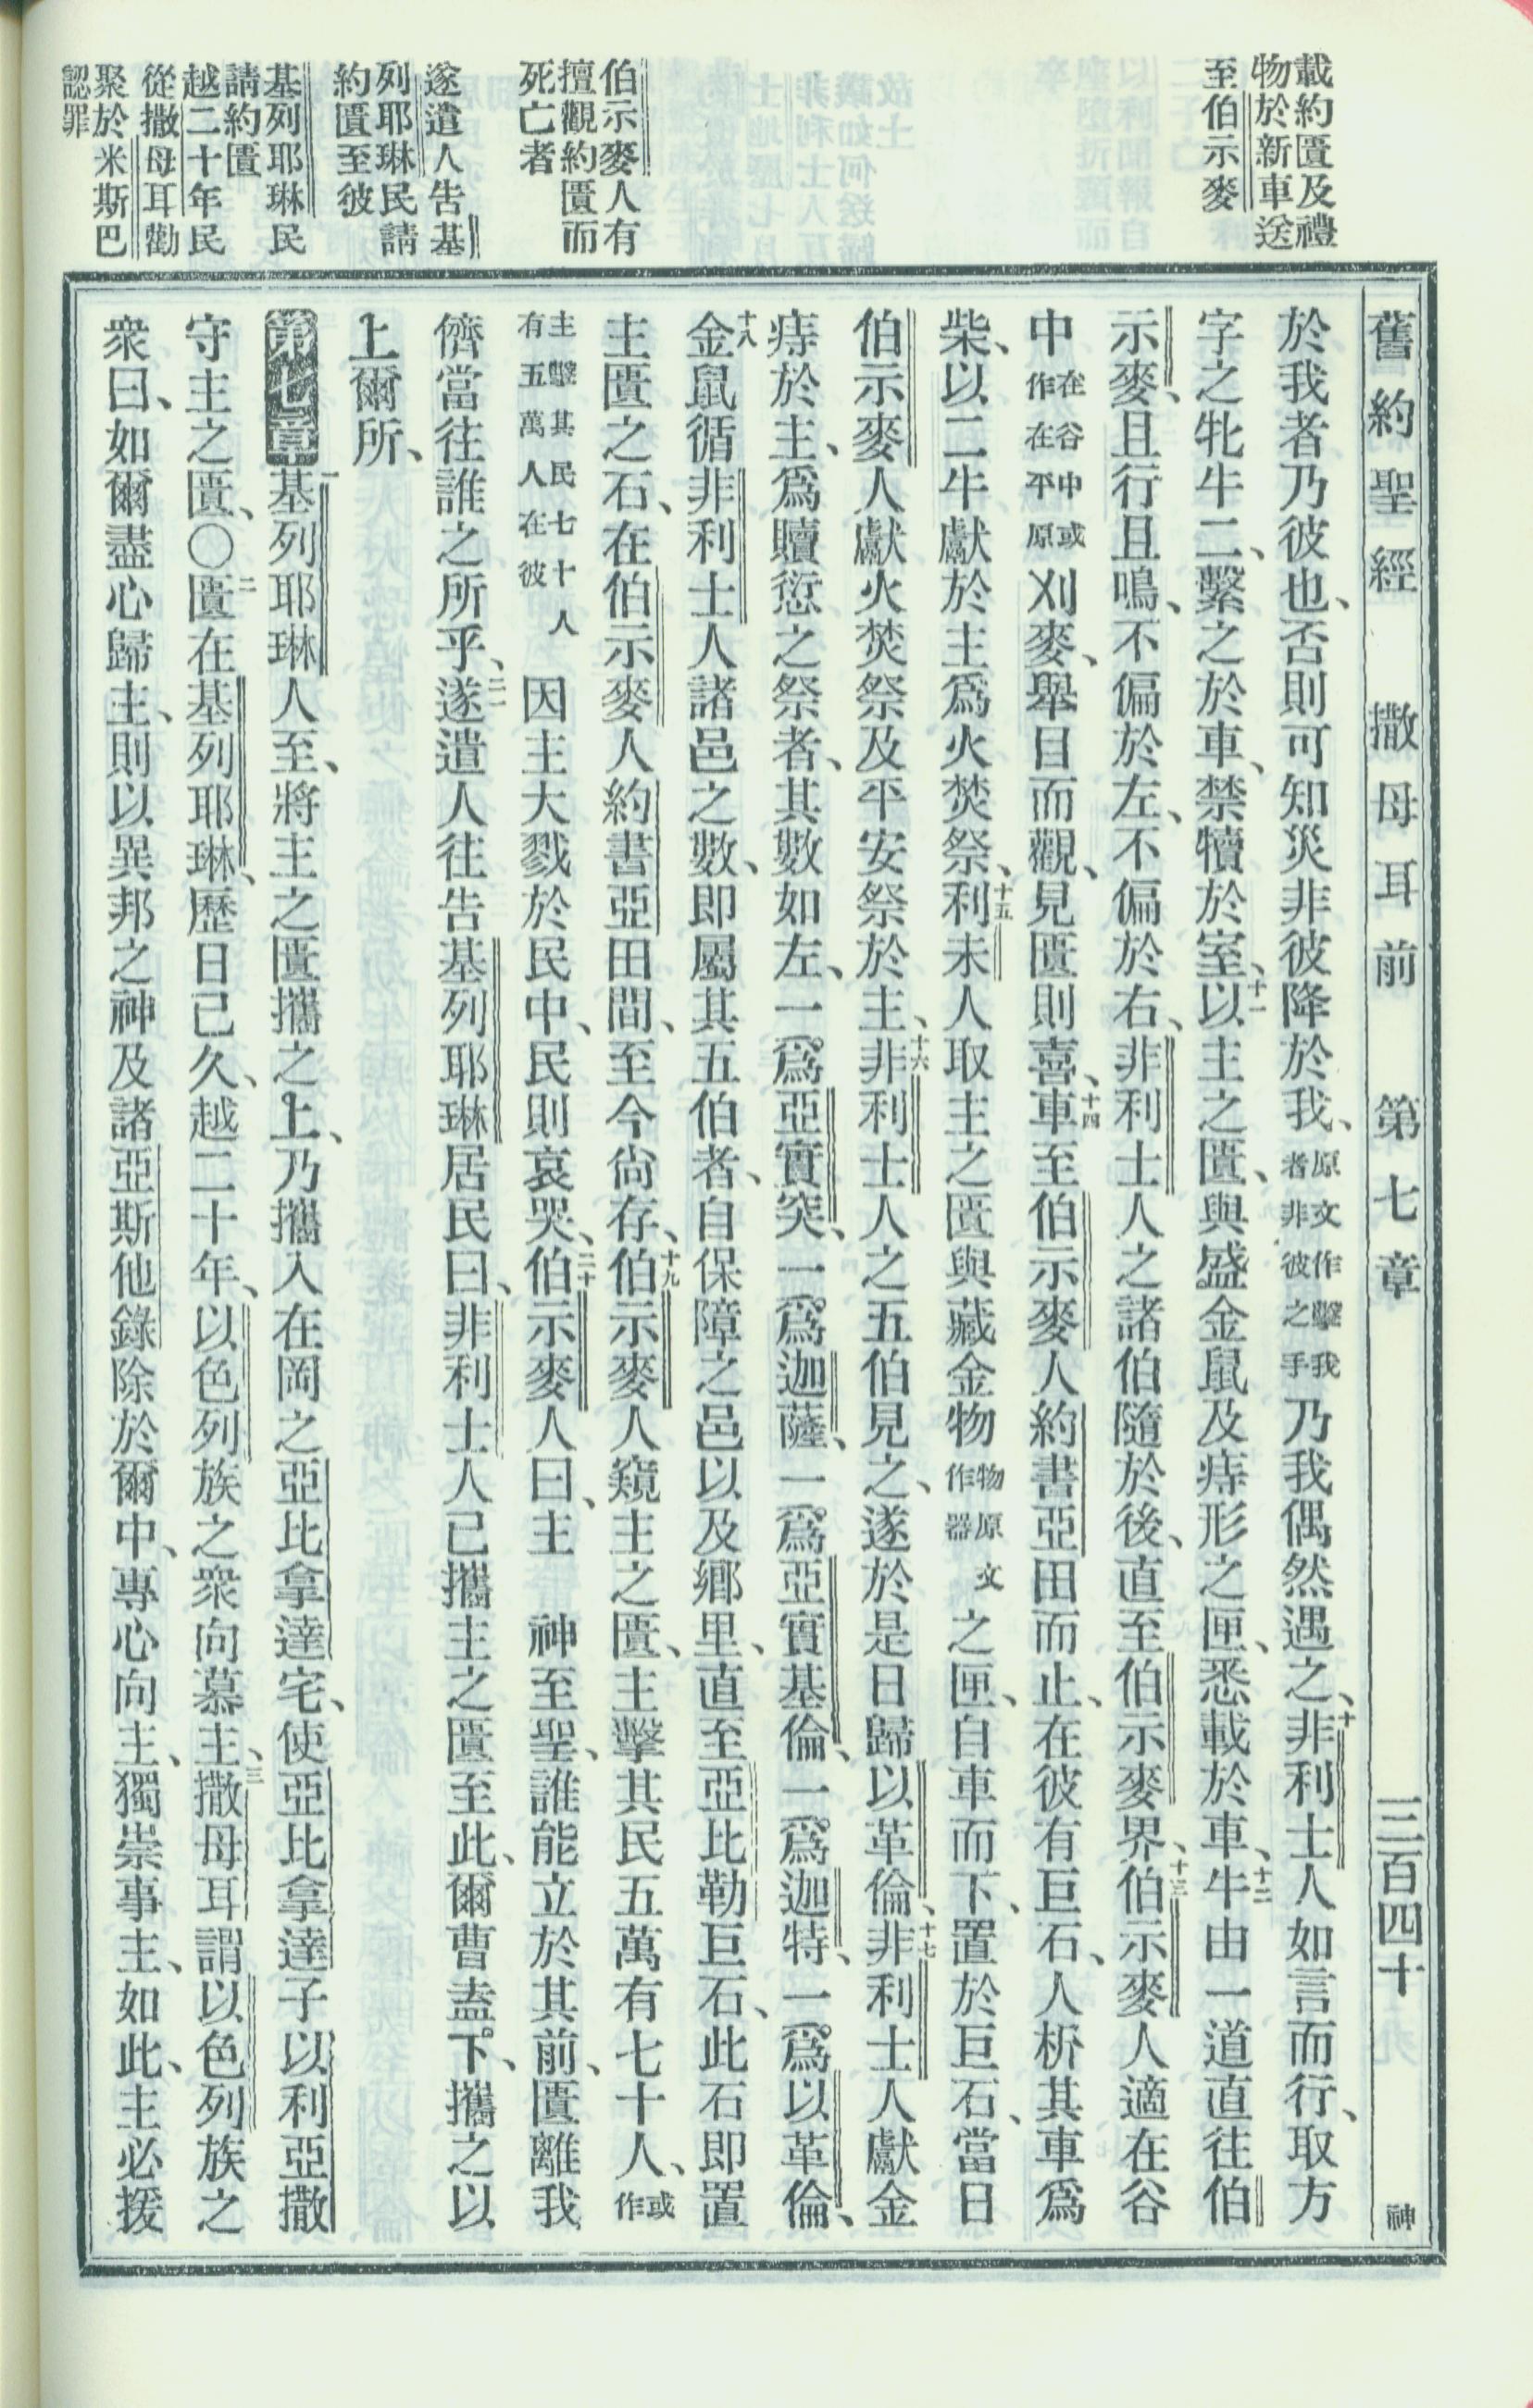 載約匱及禮
物於新車送
至伯示麥
伯示麥人有
擅觀約匱而
死亡者
遂遣人告基
列耶琳民請
約匱至彼
基列耶琳民
請約匱
越二十年民
從撒母耳勸
聚於米斯巴
認罪
舊約聖經 撒母耳前 第七章 三百四十 神
於我者乃彼也、否則可知災非彼降於我、原文作擊我者非彼之手乃我偶然遇之、十非利士人如言而行、取方
字之牝牛二、繫之於車、禁犢於室、十一以主之匱、與盛金鼠及痔形之匣、悉載於車、十二牛由一道直往伯
示麥、且行且鳴、不偏於左、不偏於右、非利士人之諸伯隨於後、直至伯示麥界、十三伯示麥人適在谷
中在谷中或作在平原刈麥、舉目而觀、見匱則喜、十四車至伯示麥人約書亞田而止、在彼有巨石、人析其車爲
柴、以二牛獻於主爲火焚祭、十五利未人取主之匱與藏金物物原文作器之匣、自車而下、置於巨石、當日
伯示麥人獻火焚祭及平安祭於主、十六非利士人之五伯見之、遂於是日歸以革倫、十七非利士人獻金
痔於主、爲贖愆之祭者、其數如左、一爲亞實突、一爲迦薩、一爲亞實基倫、一爲迦特、一爲以革倫、
十八金鼠循非利士人諸邑之數、即屬其五伯者、自保障之邑以及鄉里、直至亞比勒巨石、此石即置
主匱之石、在伯示麥人約書亞田間、至今尚存、十九伯示麥人窺主之匱、主擊其民五萬有七十人、或作
主擊其民七十人有五萬人在彼因主大戮於民中、民則哀哭、二十伯示麥人曰、主 神至聖、誰能立於其前、匱離我
儕當往誰之所乎、二一遂遣人往告基列耶琳居民曰、非利士人已攜主之匱至此、爾曹盍下、攜之以
上爾所、
第七章一基列耶琳人至、將主之匱攜之上、乃攜入在岡之亞比拿達宅、使亞比拿達子以利亞撒
守主之匱、〇二匱在基列耶琳、歷日已久、越二十年、以色列族之衆向慕主、三撒母耳謂以色列族之
衆曰、如爾盡心歸主、則以異邦之神及諸亞斯他錄除於爾中、專心向主、獨崇事主、如此、主必援